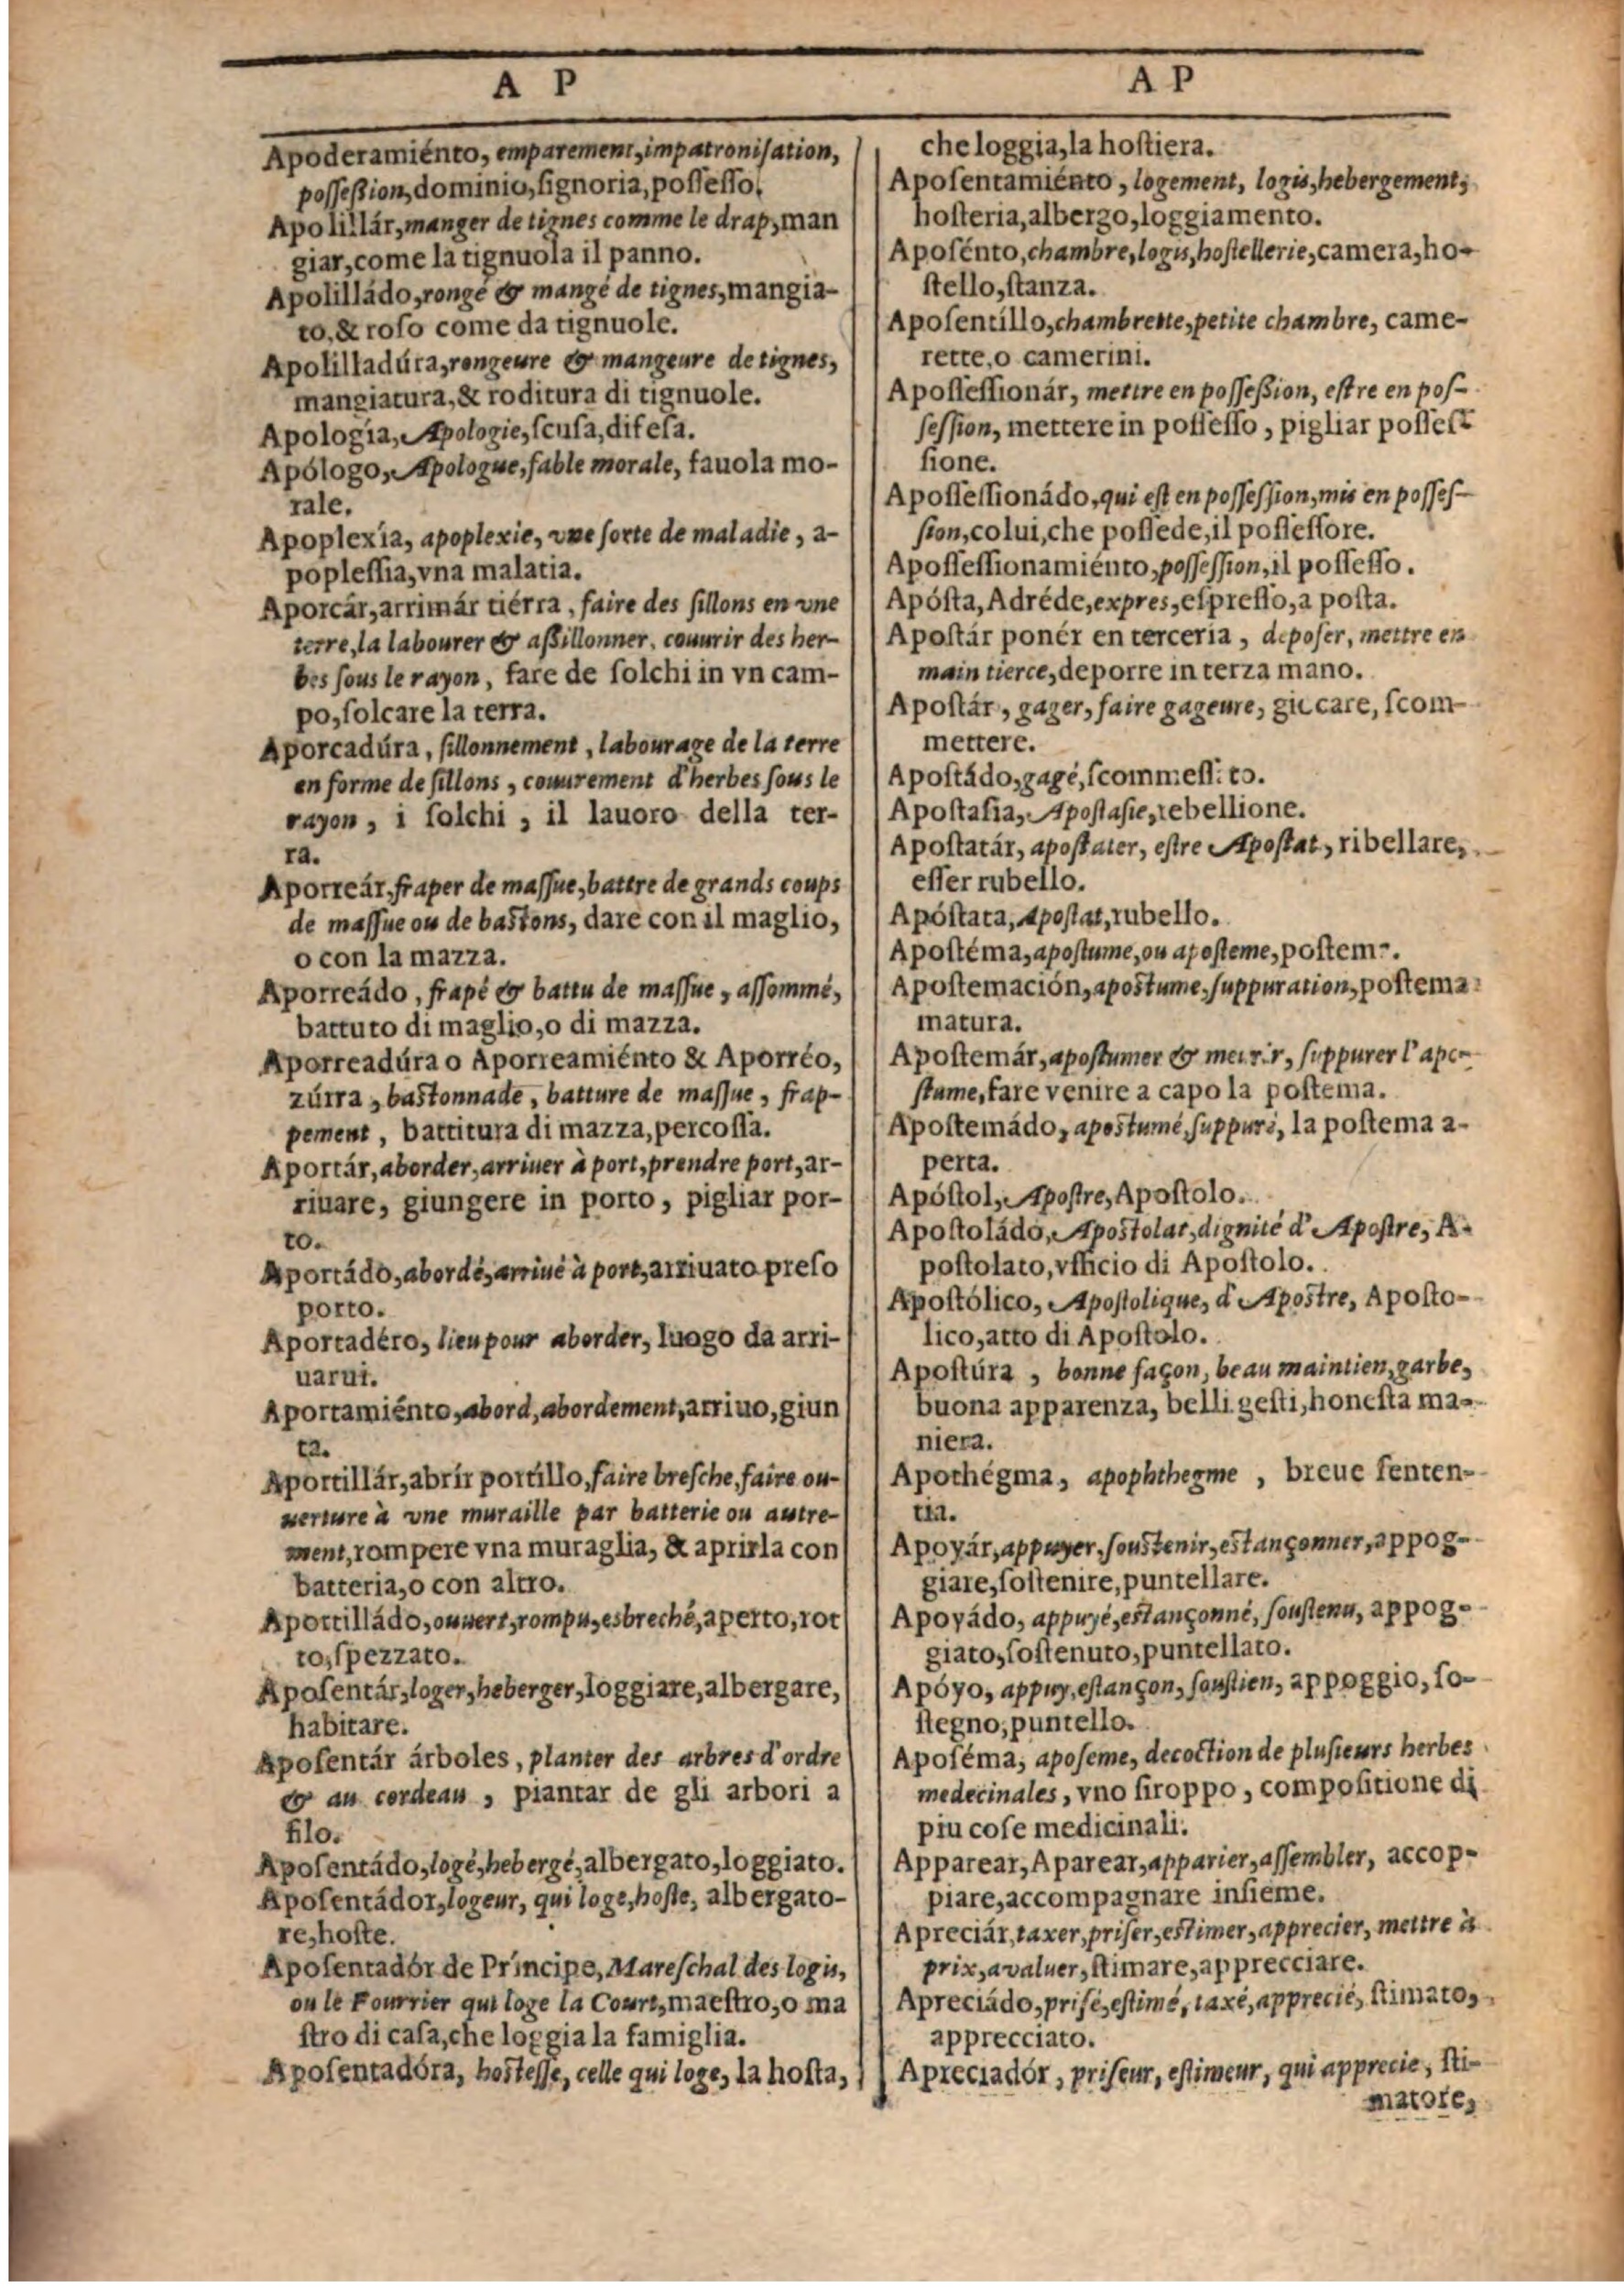 A P
Apoderamiénto, emparement, impatronisation,
possession, dominio, signoria, possesso.
Apolillár, manger de tignes comme le drap, man
giar, come la tignuola il panno.
Apolilládo, rongé & mangé de tignes, mangia-
to, & roso come da tignuole.
Apolilladúra, rongeure & mangeure de tignes,
mangiatura, & roditura di tignuole.
Apología, Apologie, scusa, difesa.
Apólogo, Apologue, fable morale, fauola mo-
rale.
Apoplexía, apoplexie, vne sorte de maladie, a-
poplessia, vna malatia.
Aporcár, arrimár tiérra, faire des sillons en vne
terre, la labourer & assillonner, couurir des her-
bes sous le rayon, fare de solchi in vn cam-
po, solcare la terra.
Aporcadúra, sillonnement, labourage de la terre
en forme de sillons, couurement d'herbes sous le
rayon, i solchi, il lauoro della ter-
ra.
Aporreár, fraper de massue, battre de grands coups
de massue ou de bastons, dare con il maglio,
o con la mazza.
Aporreádo, frapé & battu de massue, assommé,
battuto di maglio, o di mazza.
Aporreadúra o Aporreamiénto & Aporréo,
zúrra, bastonnade, batture de massue, frap-
pement, battitura di mazza, percossa.
Aportár, aborder, arriuer à port, prendre port, ar-
riuare, giungere in porto, pigliar por-
to.
Aportádo, abordé, arriué à port, arriuato preso
porto.
Aportadéro, lieu pour aborder, luogo da arri-
uarui.
Aportamiénto, abord, abordement, arriuo, giun
ta.
Aportillár, abrír portíllo, faire bresche, faire ou-
uerture à vne muraille par batterie ou autre-
ment, rompere vna muraglia, & aprirla con
batteria, o con altro.
Aportilládo, ouuert, rompu, esbreché, aperto, rot
to, spezzato.
Aposentár, loger, heberger, loggiare, albergare,
habitare.
Aposentár árboles, planter des arbres d'ordre
& au cordeau, piantar de gli arbori a
filo.
Aposentádo, logé, hebergé, albergato, loggiato.
Aposentádor, logeur, qui loge, hoste, albergato-
re, hoste.
Aposentadór de Príncipe, Mareschal des logis,
ou le Fourrier qui loge la Court, maestro, o ma
stro di casa, che loggia la famiglia.
Aposentadóra, hostesse, celle qui loge, la hosta,
A P
che loggia, la hostiera.
Aposentamiénto, logement, logis, hebergement,
hosteria, albergo, loggiamento.
Aposénto, chambre, logis, hostellerie, camera, ho-
stello, stanza.
Aposentíllo, chambrette, petite chambre, came-
rette, o camerini.
Apossessionár, mettre en possession, estre en pos-
session, mettere in possesso, pigliar posses-
sione.
Apossessionádo, qui est en possession, mis en posses-
sion, colui, che possede, il possessore.
Apossessionamiénto, possession, il possesso.
Apósta, Adréde, expres, espresso, a posta.
Apostár ponér en terceria, deposer, mettre en
main tierce, deporre in terza mano.
Apostár, gager, faire gageure, giucare, scom-
mettere.
Apostádo, gagé, scommesso.
Apostasia, Apostasie, rebellione.
Apostatár, apostater, estre Apostat, ribellare,
esser rubello.
Apóstata, Apostat, rubello.
Apostéma, apostume, ou aposteme, postema.
Apostemación, apostume, suppuration, postema
matura.
Apostemár, apostumer & meurir, suppurer l'apo-
stume, fare venire a capo la postema.
Apostemádo, apostumé, suppuré, la postema a-
perta.
Apóstol, Apostre, Apostolo.
Apostoládo, Apostolat, dignité d'Apostre, A-
postolato, vfficio di Apostolo.
Apostólico, Apostolique, d'Apostre, Aposto-
lico, atto di Apostolo.
Apostúra, bonne façon, beau maintien, garbe,
buona apparenza, belli gesti, honesta ma-
niera.
Apothégma, apophthegme, breue senten-
tia.
Apoyár, appuyer, soustenir, estançonner, appog-
giare, sostenire, puntellare.
Apoyádo, appuyé, estançonné, soustenu, appog-
giato, sostenuto, puntellato.
Apóyo, appuy, estançon, soustien, appoggio, so-
stegno, puntello.
Aposéma, aposeme, decoction de plusieurs herbes
medecinales, vno siroppo, compositione di
piu cose medicinali.
Apparear, Aparear, apparier, assembler, accop-
piare, accompagnare insieme.
Apreciár, taxer, priser, estimer, apprecier, mettre à
prix, avaluer, stimare, apprecciare.
Apreciádo, prisé, estimé, taxé, apprecié, stimato,
apprecciato.
Apreciadór, priseur, estimeur, qui apprecie, sti-
matore,